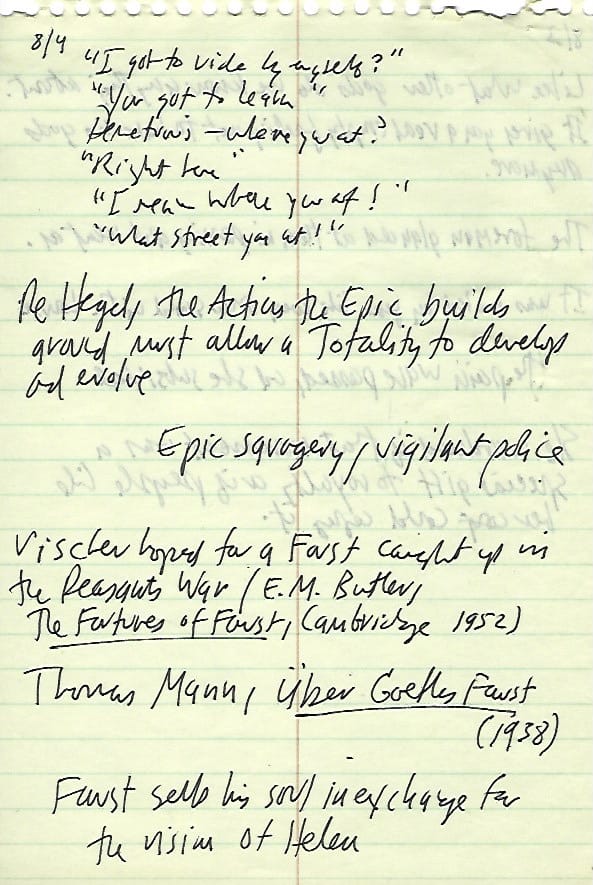 8/4
"I got to ride by myself?"
"You got to learn"
– where you at?
"Right here"
"I mean where you at!"
"What street you at!"
Re Hegel, the Action the Epic builds
around must allow a Totality to develop
and evolve
Epic savagery / vigilant police
Vischer hoped for a Faust caught up in
the Peasants War / E.M. Butler,
The Fortunes of Faust, (Cambridge 1952)
Thomas Mann, Über Goethes Faust
(1938)
Faust sells his soul in exchange for
the vision of Helen